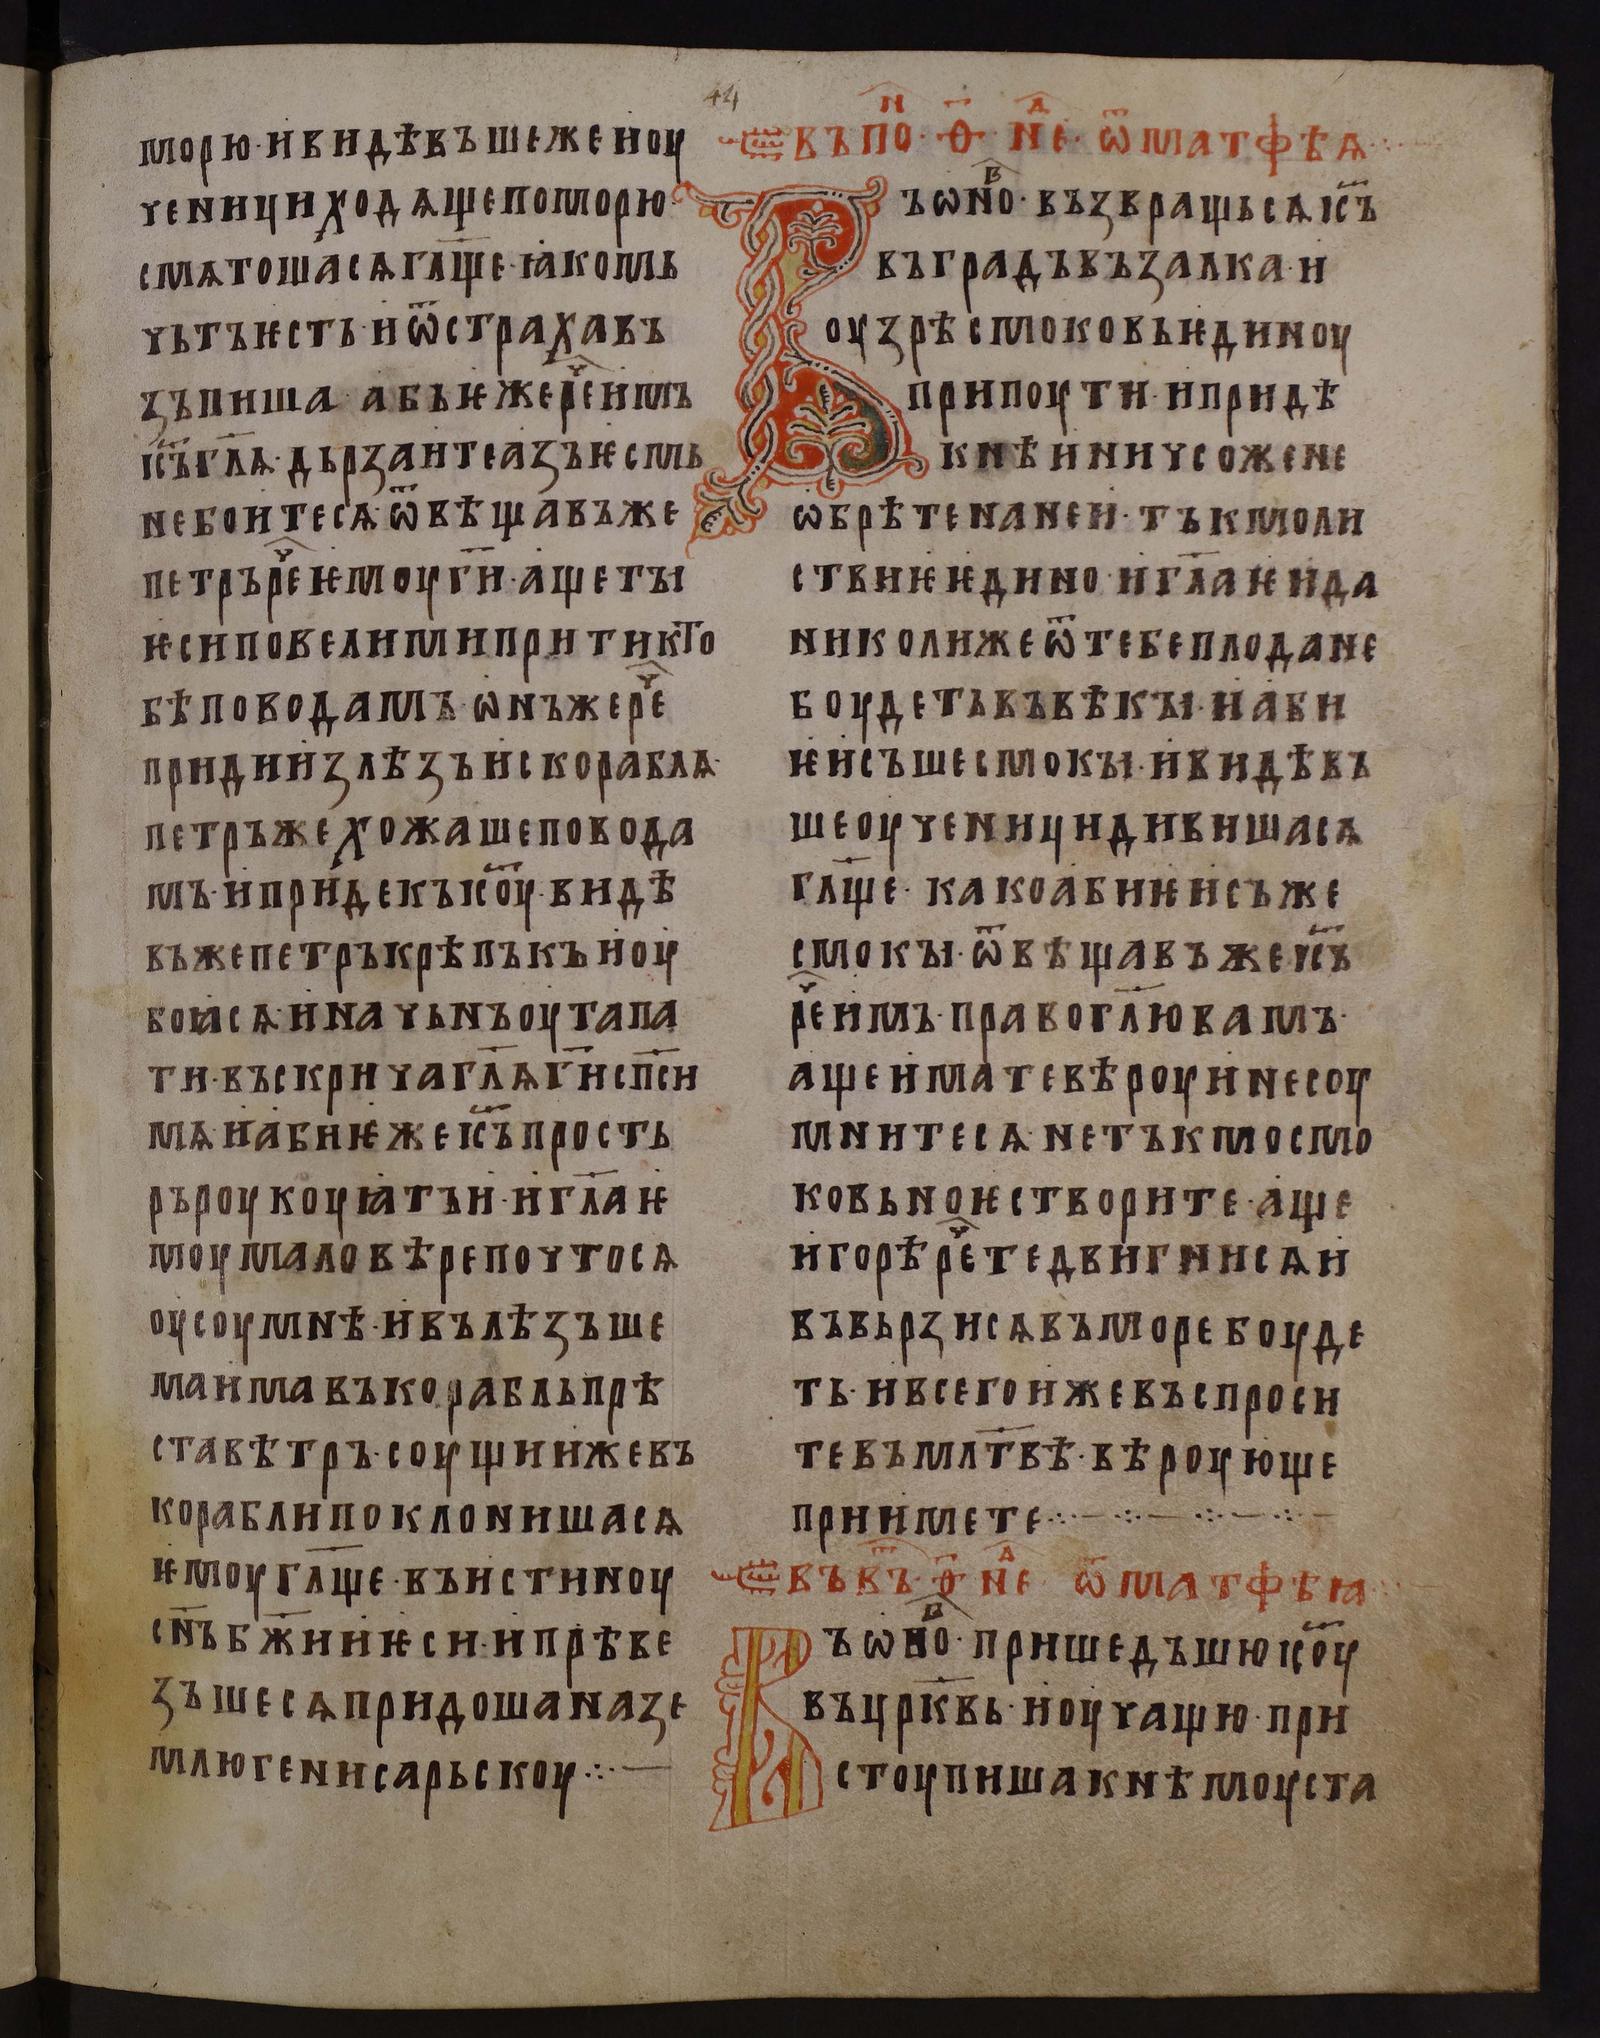 44
морю·и видѣвъше же и оу
ченици ходѧще по морю·
смѧтошасѧ гл҃ще·ꙗко мь
чьтъ ѥсть·и ѿ страха въ
зъпиша· абьѥ же реⷱ имъ
іс҃ъ гл҃ѧ·дьрзаите азъ ѥсмь
не боитесѧ·ѿвѣщавъ же
петръ реⷱ ѥмоу г҃и·аще ты
ѥси повели ми прити к то
бѣ по водамъ·ѡнъ же реⷱ
приди и излѣзъ ис кораблѧ·
петръ же хожаше по вода
мъ·и приде къ іс҃оу·видѣ
въ же петръ крѣпъкъ ноу
боꙗсѧ·и начьнъ оутапа
ти·въскрича гл҃ѧ г҃и сп҃си
мѧ·и абиѥ же іс҃ъ простъ
ръ роукоу ꙗтъ и·и гл҃а ѥ
моу маловѣре почто сѧ
оусоумнѣ·и вълѣзъше
ма има въ корабль прѣ
ста вѣтръ·соущии же въ
корабли поклонишасѧ
ѥмоу гл҃ще·въ истиноу
сн҃ъ бж҃ии ѥси·и прѣве
зъшесѧ придоша на зе
млю генисарьскоу·:·—
Є҃в въ поⷩ·ѳ҃·неⷣ·ѿ матфѣѧ·:·—
Въ ѡноⷡ·възвращьсѧ іс҃ъ
въ градъ възалка·и
оузрѣ смоковь ѥдиноу
при поути·и придѣ
к нѣи и ничсоже не
ѡбрѣте на неи·тъкмо ли
ствиѥ ѥдино·и гл҃а ѥи да
николиже ѿ тебе плода не
боудеть въ вѣкы·и аби
ѥ исъше смокы·и видѣвъ
ше оученици дивишасѧ
гл҃ще· како абиѥ исъже
смокы·ѿвѣщавъ же іс҃ъ
реⷱ имъ·право гл҃ю вамъ·
аще имате вѣроу и не соу
мнитесѧ·не тъкмо смо
ковьноѥ створите·аще
и горѣ реⷱте двигнисѧ и
въвьрзисѧ въ море боуде
ть·и всего иже въспроси
те въ мл҃твѣ·вѣроующе
приимете·:·—·:·—·:·—·:·—
Є҃в въ вт҃ъ·ѳ҃·неⷣ· ѿ матфѣꙗ·:·—
Въ ѡноⷡ·пришедъшю іс҃оу
въ црк҃вь·и оучащю·при
стоупиша к нѣмоу ста